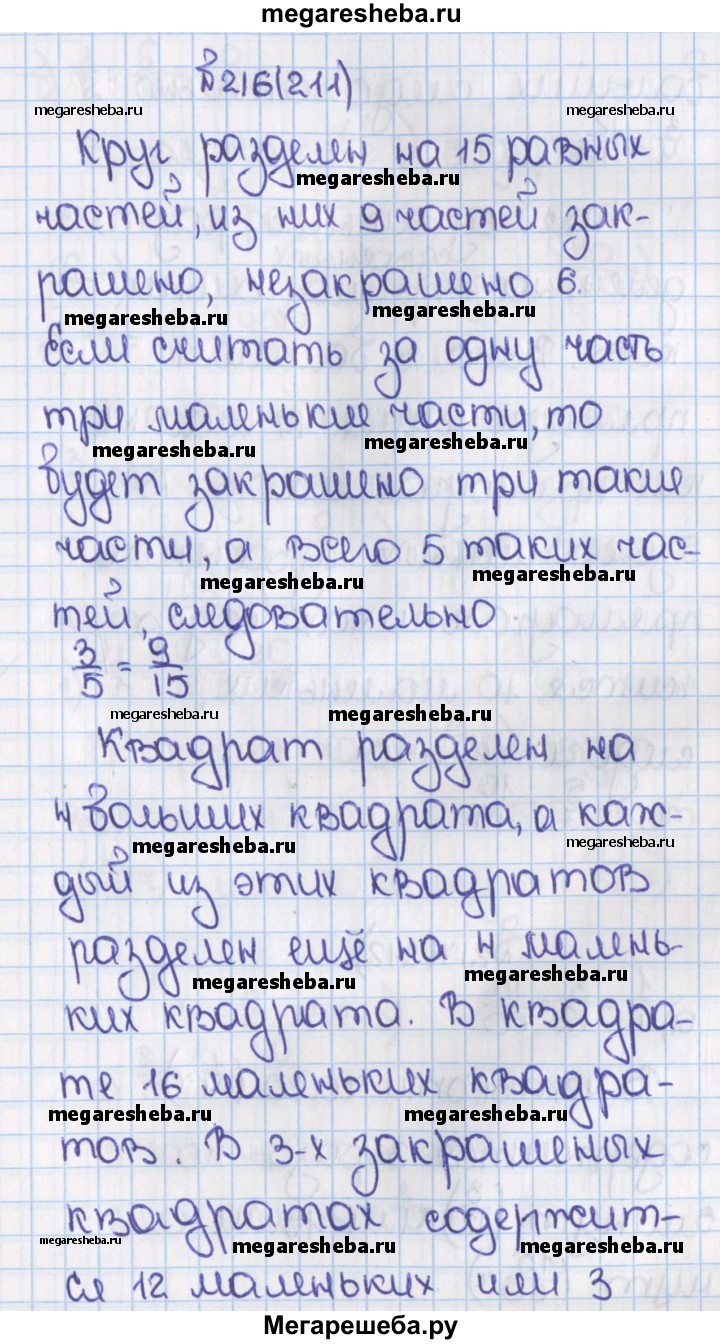 megaresheba.ru
№216(211)
megaresheba.ru megaresheba.ru
Круг разделен на 15 равных
megaresheba.ru
частей, из них 9 частей зак-
рашено, незакрашено 6.
megaresheba.ru megaresheba.ru
Если считать за одну часть
три маленькие части, то
megaresheba.ru megaresheba.ru
будет закрашено три такие
части, а всего 5 таких час-
megaresheba.ru megaresheba.ru
тей, следовательно
3/5 = 9/15
megaresheba.ru megaresheba.ru
Квадрат разделен на
4 больших квадрата, а каж-
megaresheba.ru megaresheba.ru
дый из этих квадратов
разделен ещё на 4 малень-
megaresheba.ru megaresheba.ru
ких квадрата. В квадра-
те 16 маленьких квадра-
megaresheba.ru megaresheba.ru
тов. В 3-х закрашеных
квадратах содержит-
megaresheba.ru megaresheba.ru megaresheba.ru
ся 12 маленьких или 3
Мегарешеба.ру